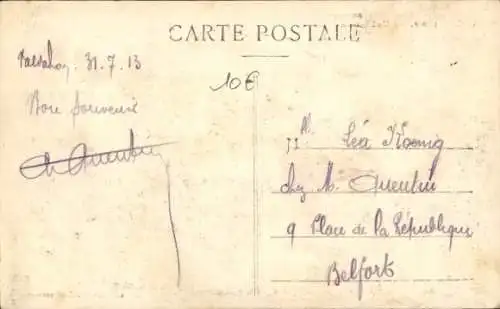 CARTE POSTALE
31.7.13
10€
Bon Souvenir
Ch Quentin
Mlle Léa Koenig
chez M. Quentin
9 Place de la République
Belfort